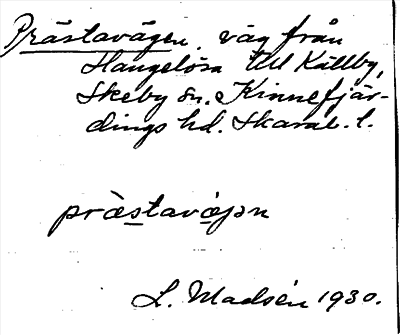 Prästavägen, väg från
Hangelösa till Källby,
Skeby sn. Kinnefjär-
dings hd. Skarab. l.
prästavägən
L. Madsén 1930.